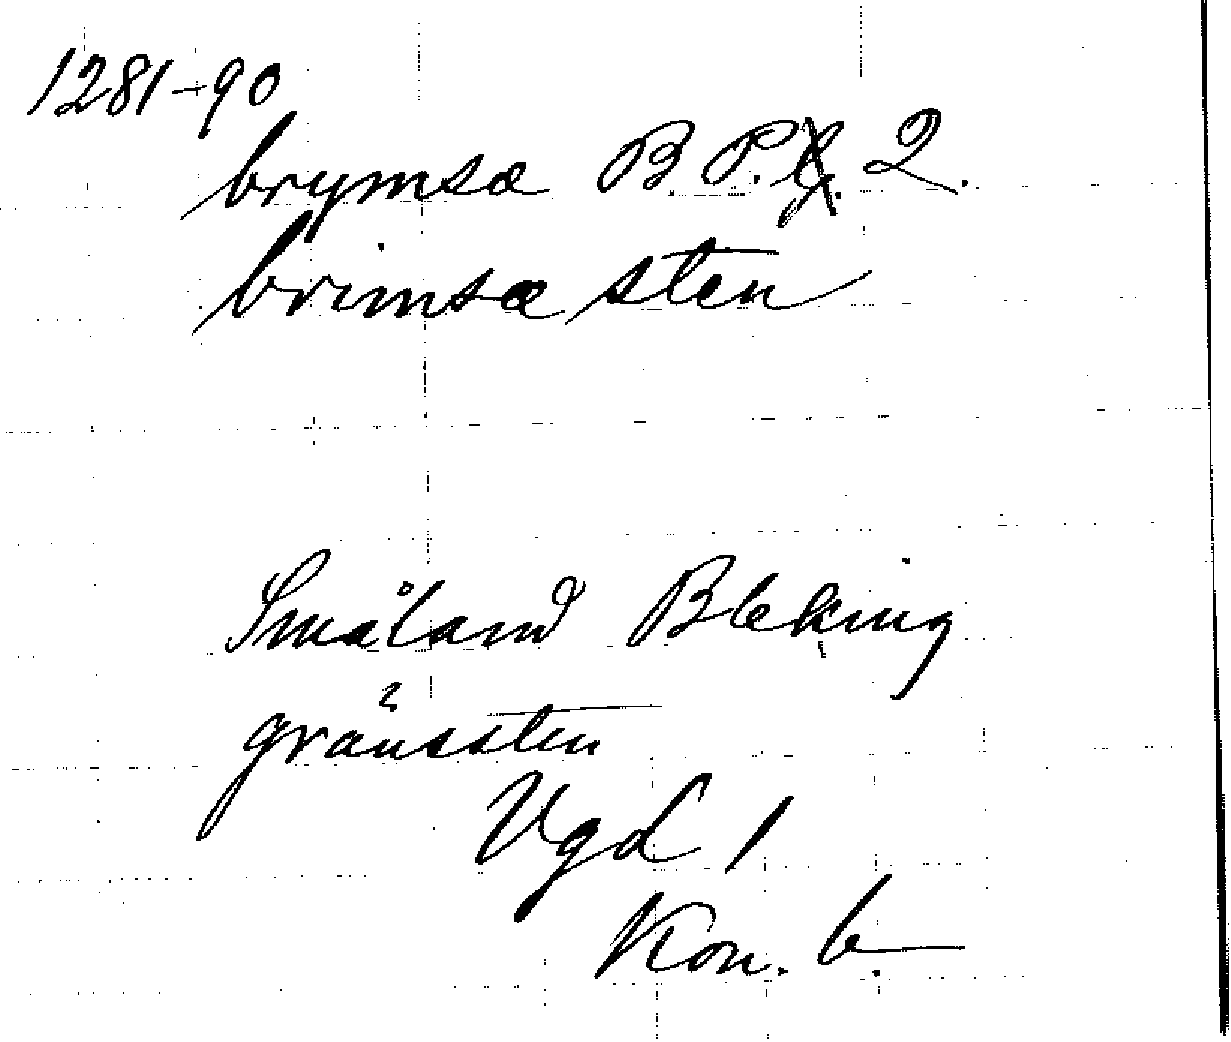 1281-90
brymsæ B. P. 2.
brimsæ sten
Småland Bleking
gränssten
Vgd 1
Kon. b.